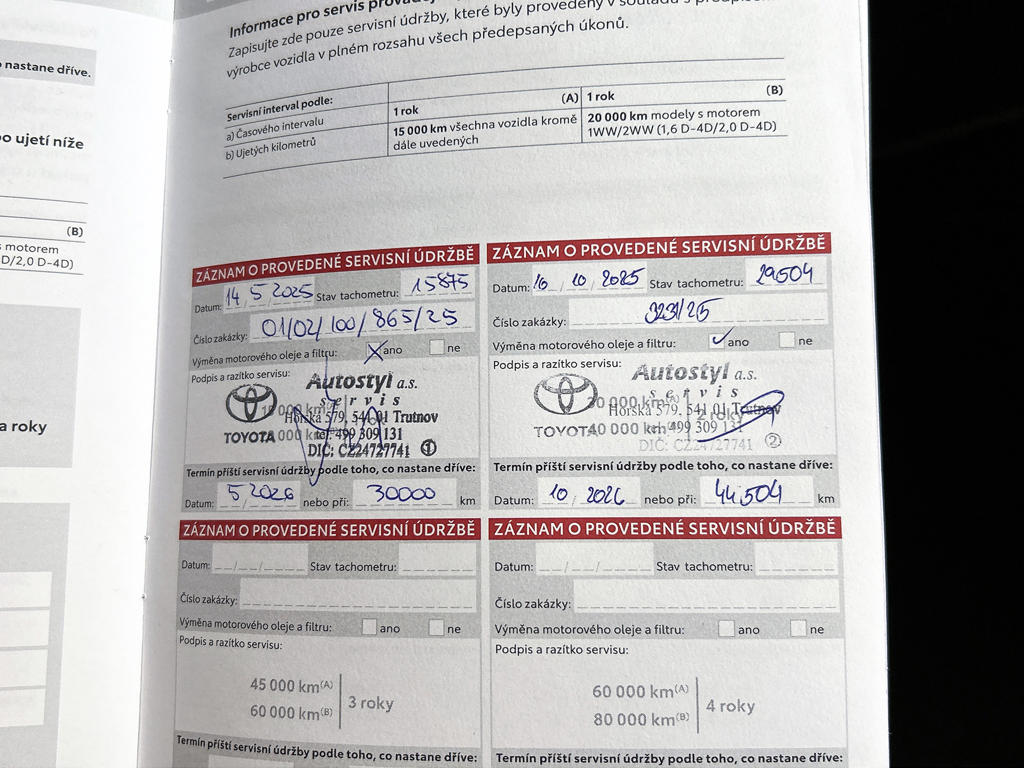 o nastane dříve.
o ujetí níže
(B)
s motorem
D/2,0 D-4D)
a roky
Informace pro servis
Zapisujte zde pouze servisní údržby, které byly provedeny v souladu s
výrobce vozidla v plném rozsahu všech předepsaných úkonů.
Servisní interval podle:
a) Časového intervalu
b) Ujetých kilometrů
1 rok (A)
15 000 km všechna vozidla kromě
dále uvedených
1 rok (B)
20 000 km modely s motorem
1WW/2WW (1,6 D-4D/2,0 D-4D)
ZÁZNAM O PROVEDENÉ SERVISNÍ ÚDRŽBĚ
Datum: 14/5/2025 Stav tachometru: 15875
Číslo zakázky: 01/02/100/865/25
Výměna motorového oleje a filtru: X ano ne
Podpis a razítko servisu:
Autostyl a.s.
servis
Horská 579, 541 01 Trutnov
TOYOTA tel. 499 309 131
DIČ: CZ24727741 ①
Termín příští servisní údržby podle toho, co nastane dříve:
Datum: 5/2026 nebo při: 30000 km
ZÁZNAM O PROVEDENÉ SERVISNÍ ÚDRŽBĚ
Datum: 16/10/2025 Stav tachometru: 29504
Číslo zakázky: 3231/25
Výměna motorového oleje a filtru: ✓ ano ne
Podpis a razítko servisu:
Autostyl a.s.
servis
30 000 km(A)
Horská 579, 541 01 Trutnov
2 roky
TOYOTA 40 000 km tel. 499 309 131
DIČ: CZ24727741 ②
Termín příští servisní údržby podle toho, co nastane dříve:
Datum: 10/2026 nebo při: 44504 km
ZÁZNAM O PROVEDENÉ SERVISNÍ ÚDRŽBĚ
Datum: Stav tachometru:
Číslo zakázky:
Výměna motorového oleje a filtru: ano ne
Podpis a razítko servisu:
45 000 km(A)
60 000 km(B)
3 roky
Termín příští servisní údržby podle toho, co nastane dříve:
ZÁZNAM O PROVEDENÉ SERVISNÍ ÚDRŽBĚ
Datum: Stav tachometru:
Číslo zakázky:
Výměna motorového oleje a filtru: ano ne
Podpis a razítko servisu:
60 000 km(A)
80 000 km(B)
4 roky
Termín příští servisní údržby podle toho, co nastane dříve: